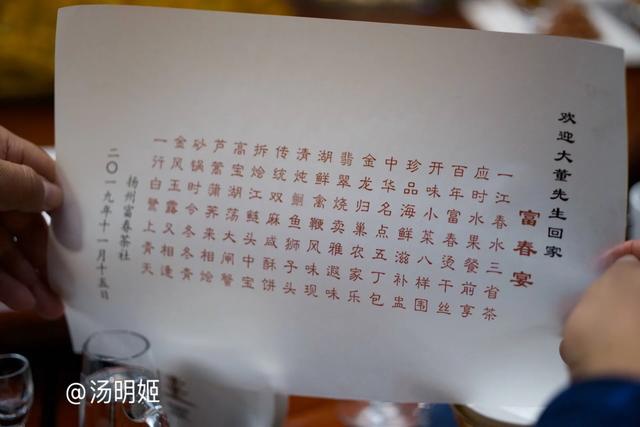 欢迎大董先生回家
富春宴
一江春水三省茶
应时水果餐前享
百年富春烫干丝
开味小菜八样围
珍品海鲜滋补盅
中华名点五丁包
金龙归巢农家乐
翡翠烧卖雅遐味
湖鲜禽鞭风味现
清炖鮰鱼狮子头
传统双麻咸酥饼
拆烩江鲢头中宝
高宝湖荡大闸蟹
芦蒿蒲荠来相烩
砂锅时今冬冬青
金风玉露又相逢
一行白鹭上青天
扬州富春茶社
二〇一九年十一月十五日
@汤明姬